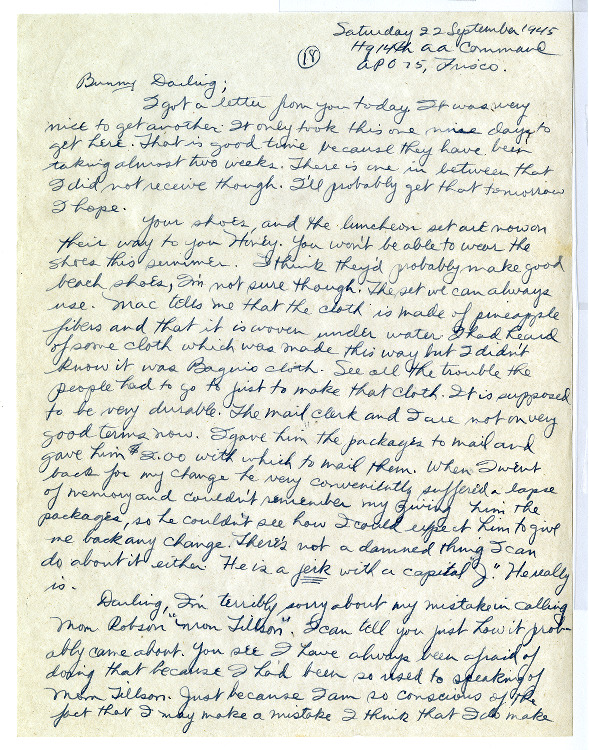 Saturday 22 September 1945
Hq 14th aa Command
APO 75, Frisco.
18
Bunny Darling;
I got a letter from you today. It was very
nice to get another. It only took this one nine days to
get here. That is good time because they have been
taking almost two weeks. There is one in between that
I did not receive though. I'll probably get that tomorrow
I hope.
Your shoes, and the luncheon set are now on
their way to you Honey. You won't be able to wear the
shoes this summer. I think they'd probably make good
beach shoes, I'm not sure though. The set we can always
use. Mac tells me that the cloth is made of pineapple
fibers and that it is woven under water. I had heard
of some cloth which was made this way but I didn't
know it was Baguio cloth. See all the trouble the
people had to go to just to make that cloth. It is supposed
to be very durable. The mail clerk and I are not on very
good terms now. I gave him the packages to mail and
gave him $2.00 with which to mail them. When I went
back for my change he very conveniently suffered a lapse
of memory and couldn't remember my giving him the
packages, so he couldn't see how I could expect him to give
me back any change. There's not a damned thing I can
do about it either. He is a jerk with a capital "J". He really
is.
Darling, I'm terribly sorry about my mistake in calling
Mom Robson "Mom Tillson". I can tell you just how it prob-
ably came about. You see I have always been afraid of
doing that because I had been so used to speaking of
Mom Tillson. Just because I am so conscious of the
fact that I may make a mistake I think that I do make